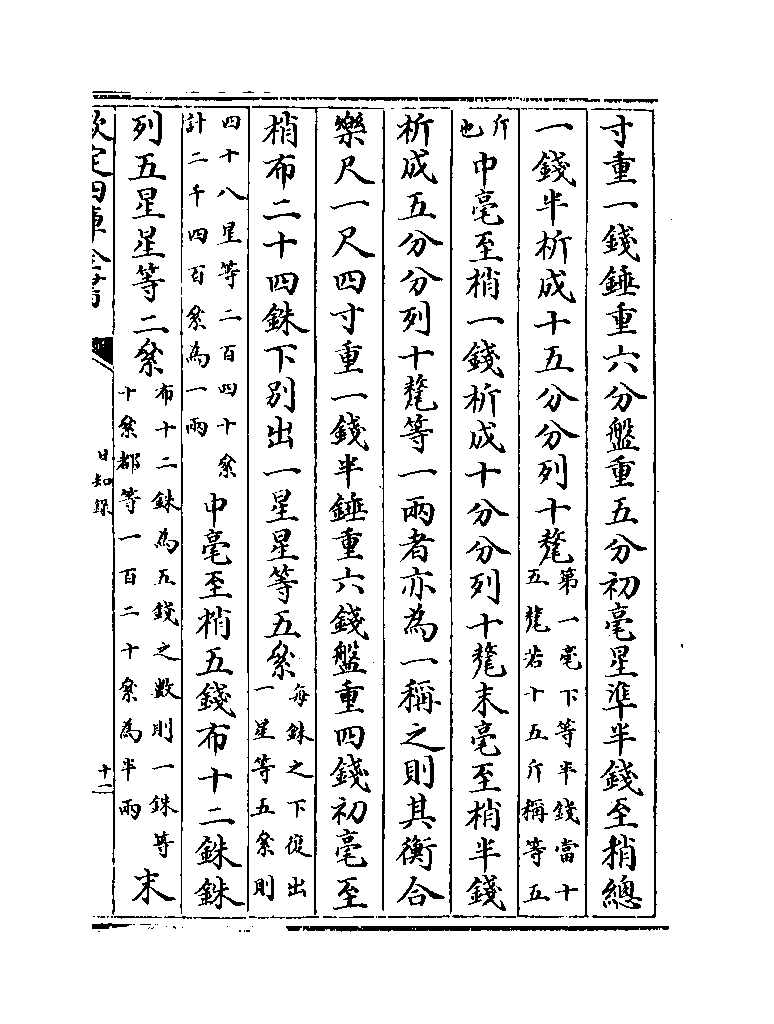 寸重一錢錘重六分盤重五分初毫星準半錢至梢總
一錢半析成十五分分列十氂第一毫下等半錢當十五氂若十五斤稱等五
斤也中毫至梢一錢析成十分分列十氂末毫至梢半錢
析成五分分列十氂等一兩者亦為一稱之則其衡合
樂尺一尺四寸重一錢半錘重六錢盤重四錢初毫至
梢布二十四銖下別出一星星等五絫每銖之下復出一星等五絫則
四十八星等二百四十絫計二千四百絫為一兩中毫至梢五錢布十二銖銖
列五星星等二絫布十二銖為五錢之數則一銖等十絫都等一百二十絫為半兩末
欽定四庫全書
日知錄
十二